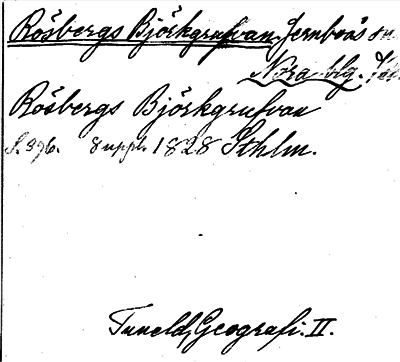 Rösbergs Björkgrufvan Jernboås sn
Nora blg.
Rösbergs Björkgrufvan
S. 396. 8 uppl. 1828 Sthlm.
Tuneld, Geografi. II.